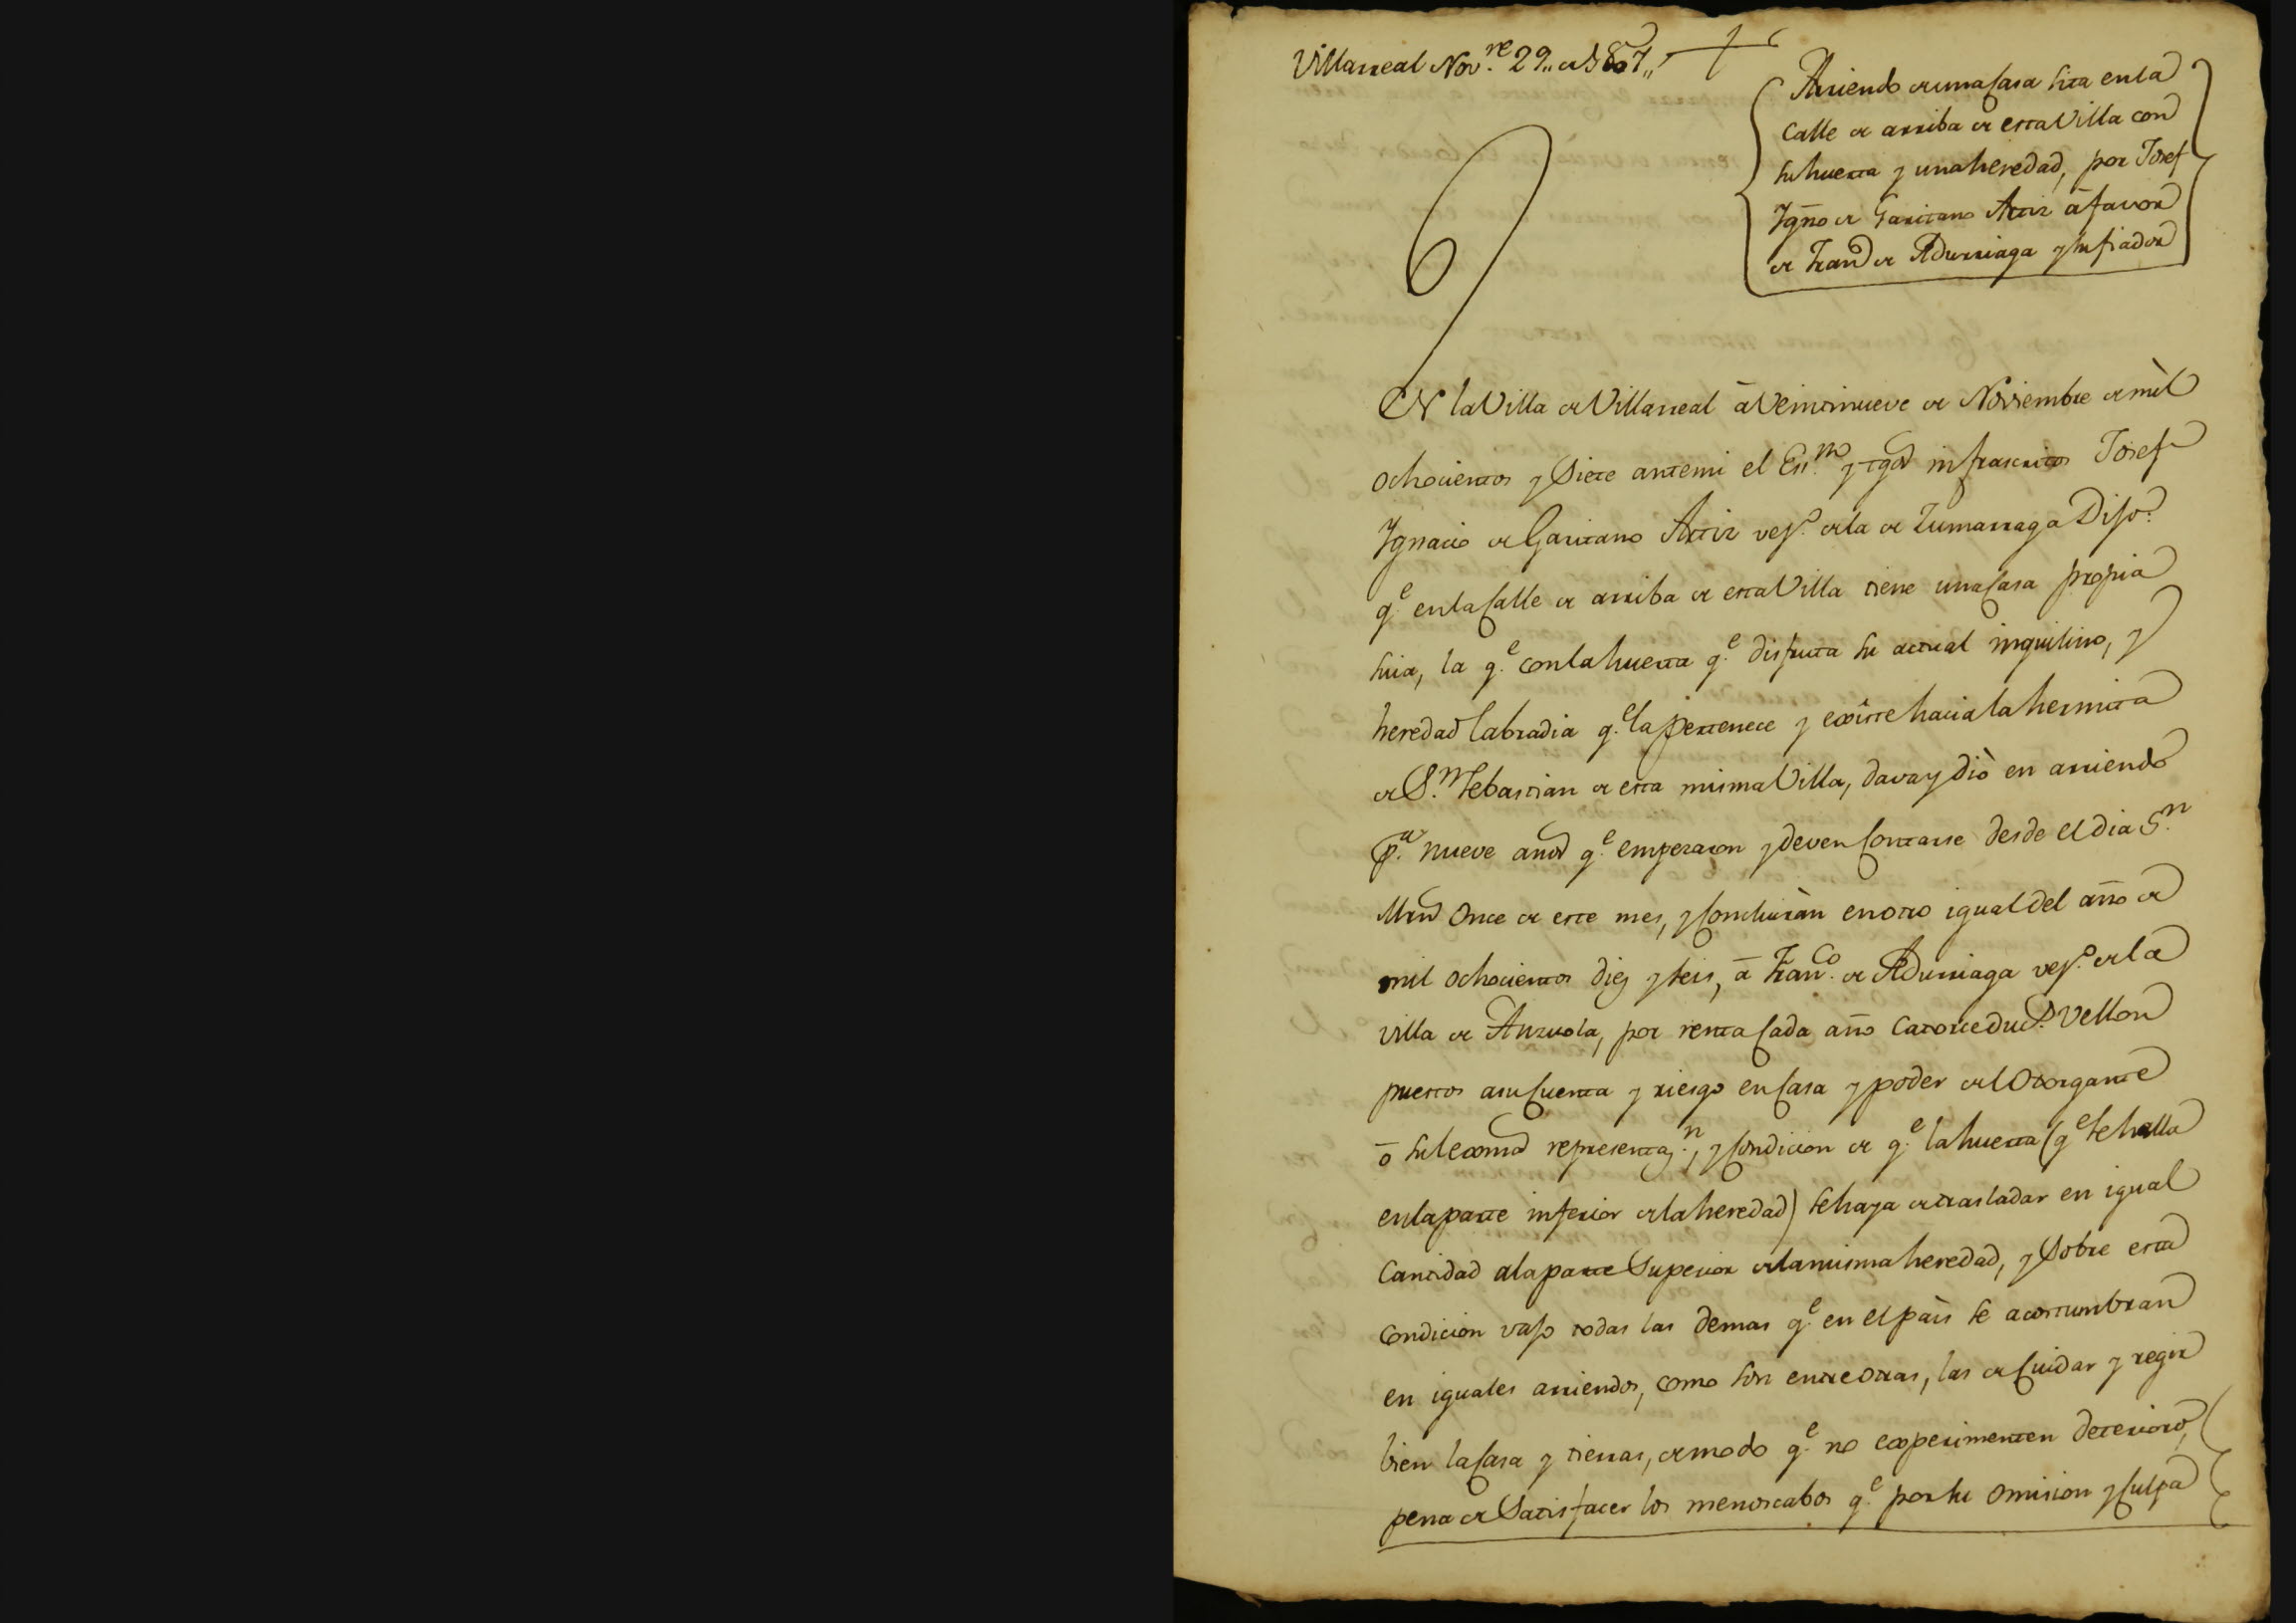 Villarreal Nov.re 29,, de 1807,,
Arriendo de una Casa sita en la
Calle de arriba de esta Villa con
su huerta y una heredad, por Josef
Ygño de Garitano Artiz á favor
de Fran.co de Adurriaga y su fiador
EN la Villa de Villarreal à Veintinueve de Noviembre de mil
ochocientos y Siete antemi el Ess.no y tgos infrascritos Josef
Ygnacio de Garitano Artiz vez.o de la de Zumarraga Dijo:
q.e en la Calle de arriba de esta Villa tiene una Casa propia
suia, la q.e con la huerta q.e disfruta su actual inquilino, y
heredad labradia q.e la pertenece y existe hacia la hermita
de S.n Sebastian de esta misma Villa, dava y diò en arriendo
p.a nueve años q.e empezaron y deven Contarse desde el dia S.n
Mrn once de este mes, y Concluiràn en otro igual del año de
mil ochocientos diez y seis, á Fran.co de Adurriaga vez.o de la
villa de Anzuola, por renta Cada año Catorce duc.s Vellon
puestos a su Cuenta y riesgo en Casa y poder del Otorgante
ó su lexma representaz.n, y Condicion de q.e la huerta (q.e se halla
en la parte inferior de la heredad) se haya de trasladar en igual
Cantidad a la parte Superior de la misma heredad, y Sobre esta
Condicion vajo todas las demas q.e en el paìs se acostumbran
en iguales arriendos, como son entre otras, las de Cuidar y regir
bien la Casa y tierras, de modo q.e no experimenten deterioro,
pena de Satisfacer los menoscabos q.e por su omision y Culpa